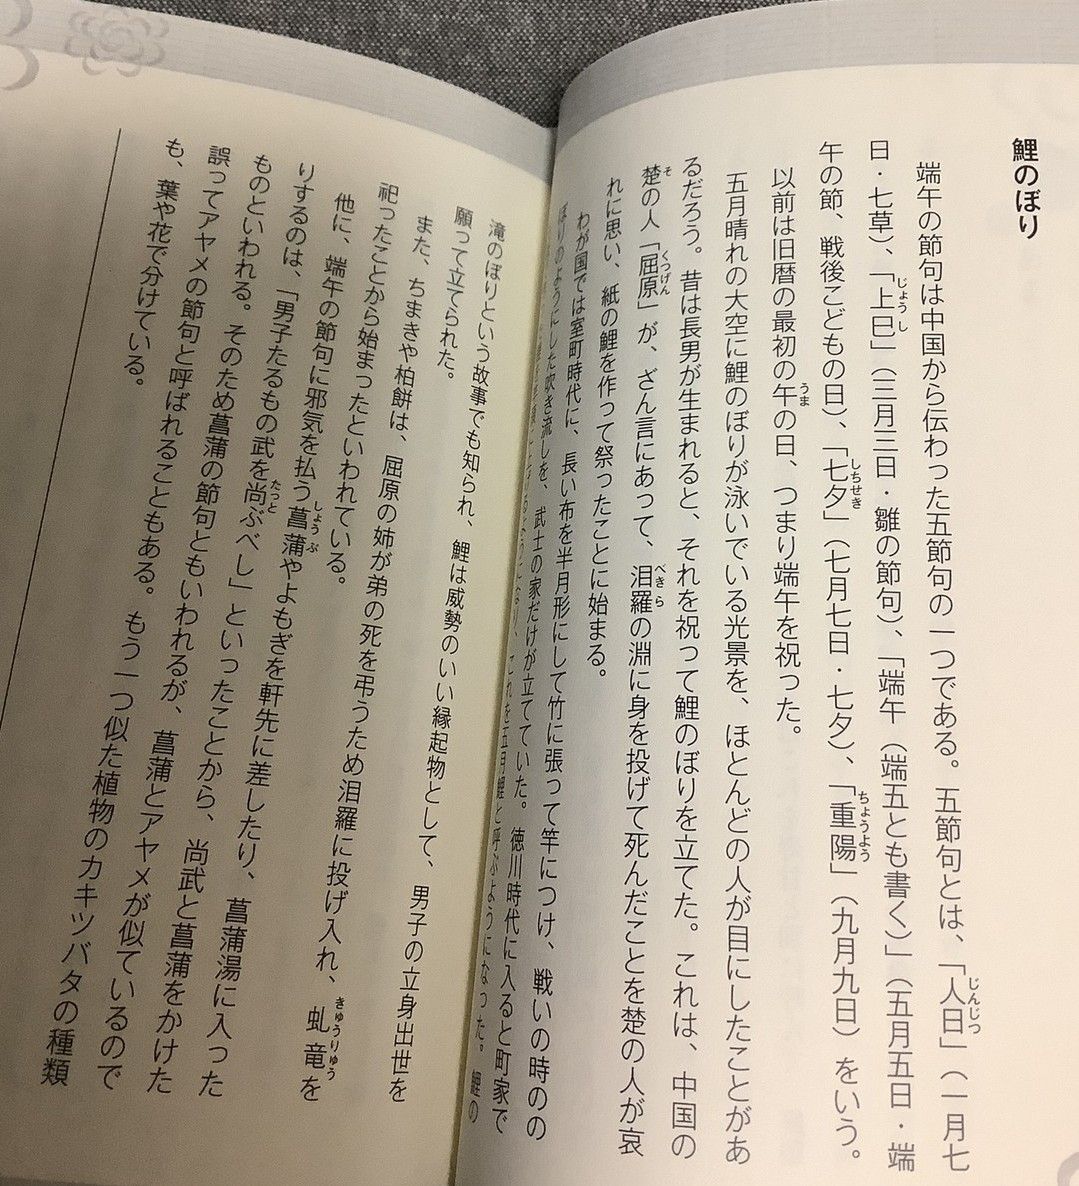 鯉のぼり
端午の節句は中国から伝わった五節句の一つである。五節句とは、「人日」（一月七
日・七草）、「上巳」（三月三日・雛の節句）、「端午（端五とも書く）」（五月五日・端
午の節、戦後こどもの日）、「七夕」（七月七日・七夕）、「重陽」（九月九日）をいう。
以前は旧暦の最初の午の日、つまり端午を祝った。
五月晴れの大空に鯉のぼりが泳いでいる光景を、ほとんどの人が目にしたことがあ
るだろう。昔は長男が生まれると、それを祝って鯉のぼりを立てた。これは、中国の
楚の人「屈原」が、ざん言にあって、汨羅の淵に身を投げて死んだことを楚の人が哀
れに思い、紙の鯉を作って祭ったことに始まる。
わが国では室町時代に、長い布を半月形にして竹に張って竿につけ、戦いの時のの
ぼりのようにした吹き流しを、武士の家だけが立てていた。徳川時代に入ると町家で
ようになり、これを五月鯉と呼ぶようになった。鯉の
滝のぼりという故事でも知られ、鯉は威勢のいい縁起物として、男子の立身出世を
願って立てられた。
また、ちまきや柏餅は、屈原の姉が弟の死を弔うため汨羅に投げ入れ、虬竜を
祀ったことから始まったといわれている。
他に、端午の節句に邪気を払う菖蒲やよもぎを軒先に差したり、菖蒲湯に入った
りするのは、「男子たるもの武を尚ぶべし」といったことから、尚武と菖蒲をかけた
ものといわれる。そのため菖蒲の節句ともいわれるが、菖蒲とアヤメが似ているので
誤ってアヤメの節句と呼ばれることもある。もう一つ似た植物のカキツバタの種類
も、葉や花で分けている。